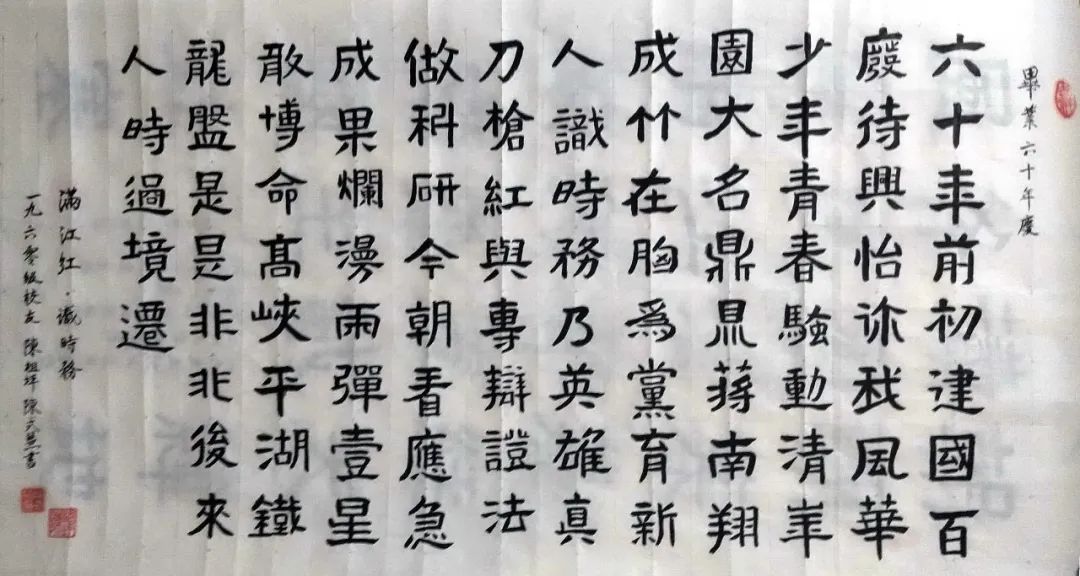 畢業六十年慶
六十年前初建國百
廢待興怡你我風華
少年青春騷動清華
園大名鼎鼎蔣南翔
成竹在胸爲黨育新
人識時務乃英雄真
刀槍紅與專辯證法
做科研今朝看應急
成果爛漫兩彈壹星
敢博命高峽平湖鐵
龍盤是是非非後來
人時過境遷
滿江紅·識時務
一九六零級校友 陳祖坪 陳 書